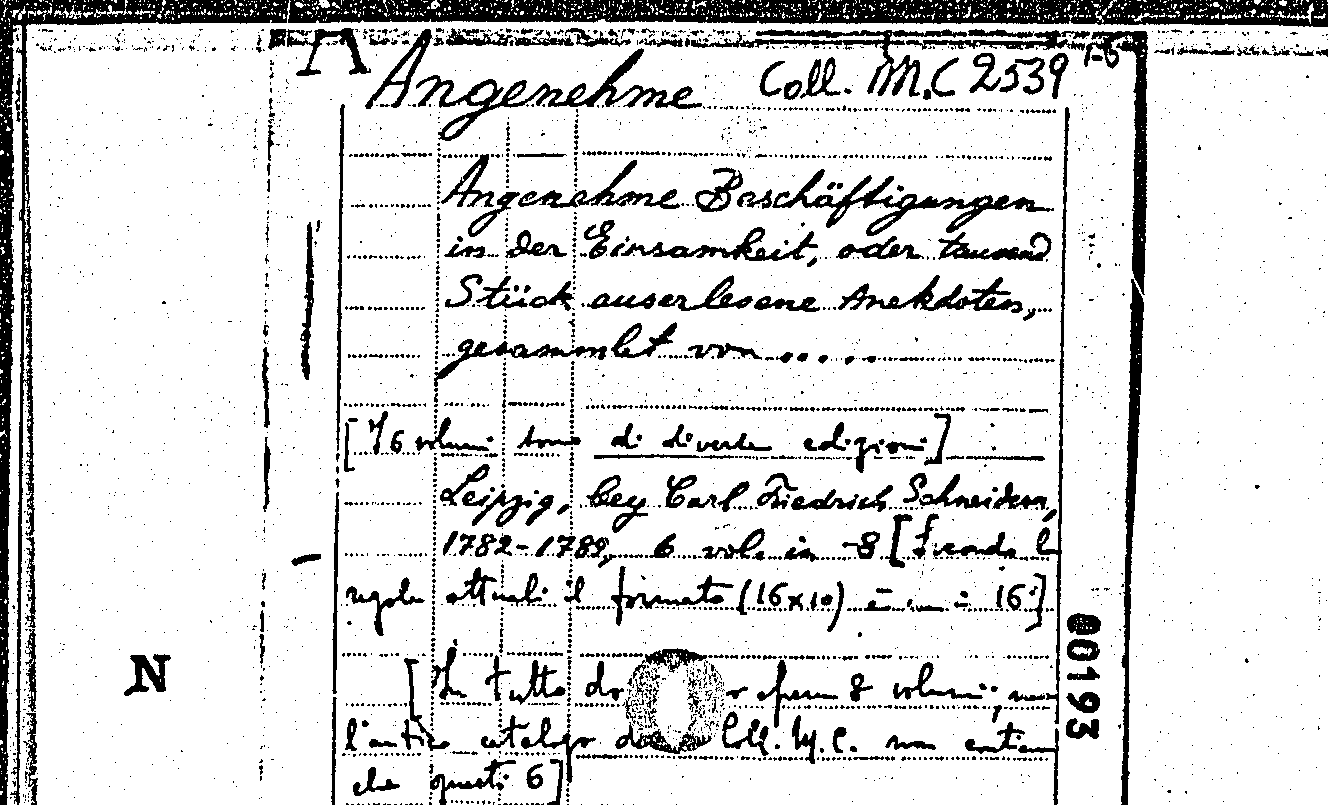 A
Angenehme Coll. M.C 2539 1-6
Angenehme Beschäftigungen
in der Einsamkeit, oder tausend
Stück auserlesene Anekdoten,
gesammlet von .....
[I 6 volumi sono di diverse edizioni]
Leipzig, bey Carl Friedrich Schneidern,
1782-1789, 6 vol. in -8 [Secondo le
regole attuali il formato (16x10) è in 16°]
N
[In tutto do r opera 8 volumi, ma
l'antico catalogo Coll. M.C. non contiene
che questi 6]
00193